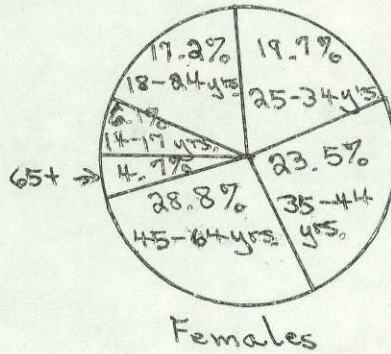 17.2%
18-24 yrs.
19.7%
25-34 yrs.
6.1%
14-17 yrs.
65+ → 4.7%
23.5%
35-44
yrs.
28.8%
45-64 yrs.
Females